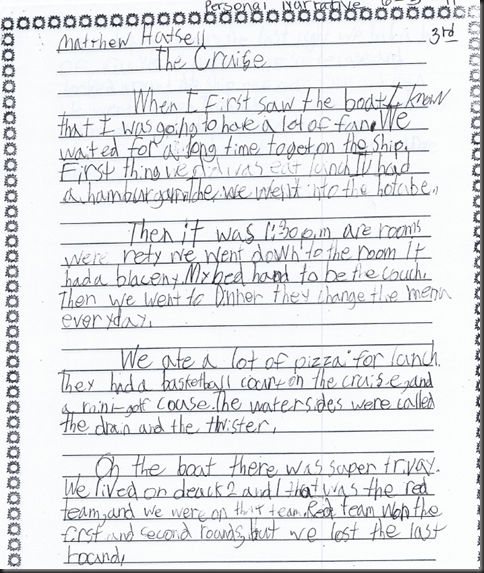 Personal Narrative
Matthew Hatsell
3rd
The Cruise
When I first saw the boat I know
that I was going to have a lot of fan. We
waited for a long time to get on the ship.
First thing we did was eat lunch I had
a hamburgur. The we went into the hotube.
Then it was 1:30 p.m are rooms
were rety we went down to the room It
had a blaceny. My bed hand to be the couch.
Then we went to Dinher they change the menu
everyday.
We ate a lot of pizza for lanch.
They had a basketball court on the cruise, and
a mini-golf couse. The watersides were called
the drain and the thwister.
On the boat there was super trivay.
We lived on deack 2 and 1 that was the red
team, and we were on that team. Red team won the
first and second rounds, but we lost the last
round.